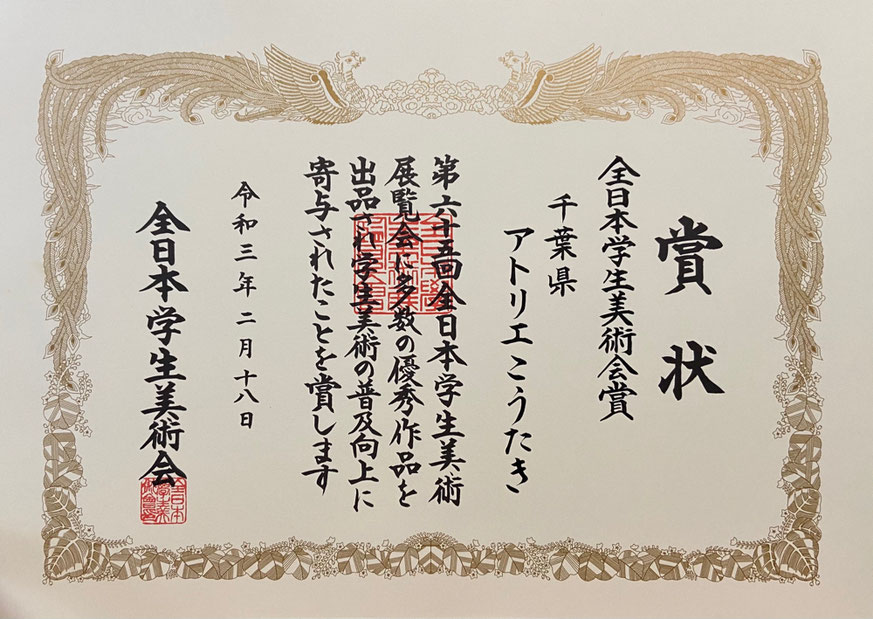 賞状
全日本学生美術会賞
千葉県
アトリエこうたき
第六十五回全日本学生美術
展覧会に多数の優秀作品を
出品され学生美術の普及向上に
寄与されたことを賞します
令和三年二月十八日
全日本学生美術会